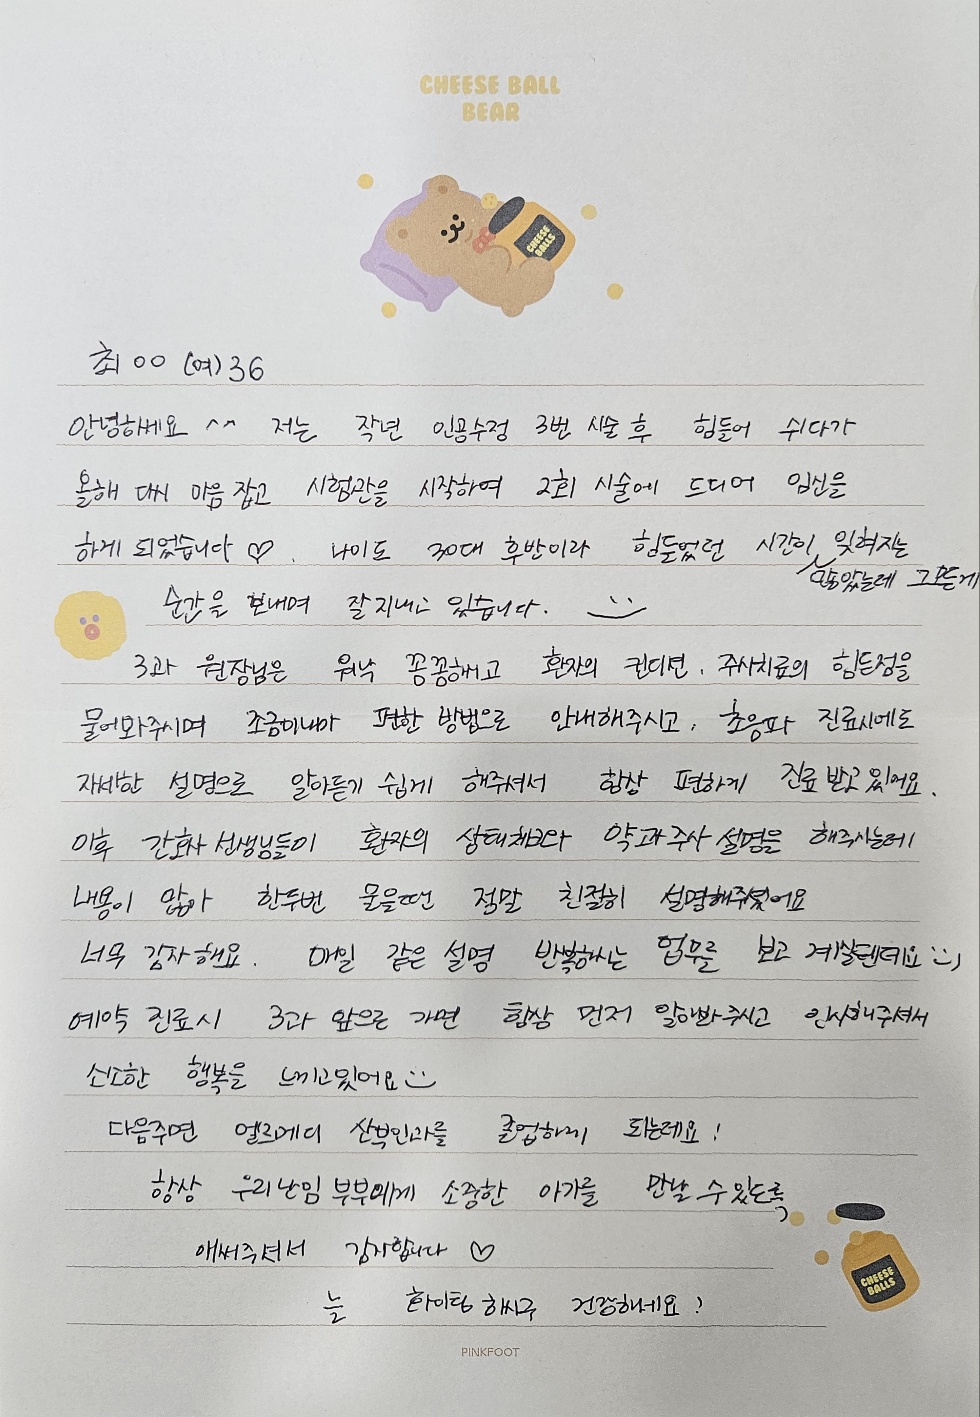 CHEESE BALL
BEAR
CHEESE
BALLS
최 ㅇㅇ (여) 36
안녕하세요 ^^ 저는 작년 인공수정 3번 시술 후 힘들어 쉬다가
올해 다시 마음 잡고 시험관을 시작하여 2회 시술에 드디어 임신을
하게 되었습니다 ♡. 나이도 30대 후반이라 힘들었던 시간이 잊혀지는
많았는데 그 모든게
순간을 보내며 잘 지내고 있습니다.
3과 원장님은 워낙 꼼꼼하시고 환자의 컨디션, 주사치료의 힘든점을
물어봐주시며 조금이나마 편한 방법으로 안내해주시고, 초음파 진료시에도
자세한 설명으로 알아듣기 쉽게 해주셔서 항상 편하게 진료 받고 있어요.
이후 간호사 선생님들이 환자의 상태체크와 약과 주사 설명을 해주시는데
내용이 많아 한두번 물을때면 정말 친절히 설명해주셨어요
너무 감사해요. 매일 같은 설명 반복하는 업무를 보고 계실텐데요 :)
예약 진료시 3과 앞으로 가면 항상 먼저 알아봐주시고 인사해주셔서
소소한 행복을 느끼고있어요 :)
다음주면 엘르메디 산부인과를 졸업하게 되는데요!
항상 우리 난임 부부에게 소중한 아가를 만날 수 있도록,
애써주셔서 감사합니다 ♡
늘 화이팅 하시구 건강하세요!
CHEESE
BALLS
PINKFOOT